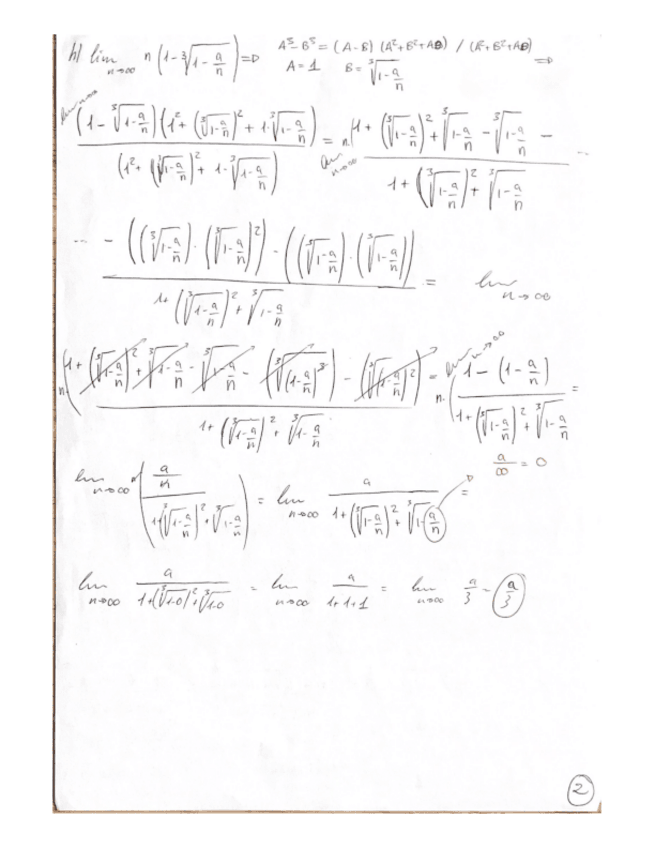 h) lim n→∞ n (1-∛(1-a/n)) ⇒ A³-B³ = (A-B) (A²+B²+AB) / (A²+B²+AB)
A=1 B=∛(1-a/n) ⇒
lim n→∞ (1-∛(1-a/n))(1²+(∛(1-a/n))²+1·∛(1-a/n)) / (1²+(∛(1-a/n))²+1·∛(1-a/n)) = lim n→∞ n·(1+(∛(1-a/n))²+∛(1-a/n)-∛(1-a/n)- / 1+(∛(1-a/n))²+∛(1-a/n) ...
... -((∛(1-a/n))·(∛(1-a/n))²)-((∛(1-a/n))·(∛(1-a/n))) / 1+(∛(1-a/n))²+∛(1-a/n) = lim n→∞
n·(1+(∛(1-a/n))²+∛(1-a/n)-∛(1-a/n)-(∛(1-a/n)³)-(∛(1-a/n)²) / 1+(∛(1-a/n))²+∛(1-a/n) = lim n→∞ n·(1-(1-a/n) / 1+(∛(1-a/n))²+∛(1-a/n) =
a/∞ = 0
lim n→∞ n(a/n / 1+(∛(1-a/n))²+∛(1-a/n)) = lim n→∞ a / 1+(∛(1-a/n))²+∛(1-a/n) =
lim n→∞ a / 1+(∛(1-0))²+∛(1-0) = lim n→∞ a / 1+1+1 = lim n→∞ a/3 = a/3
2